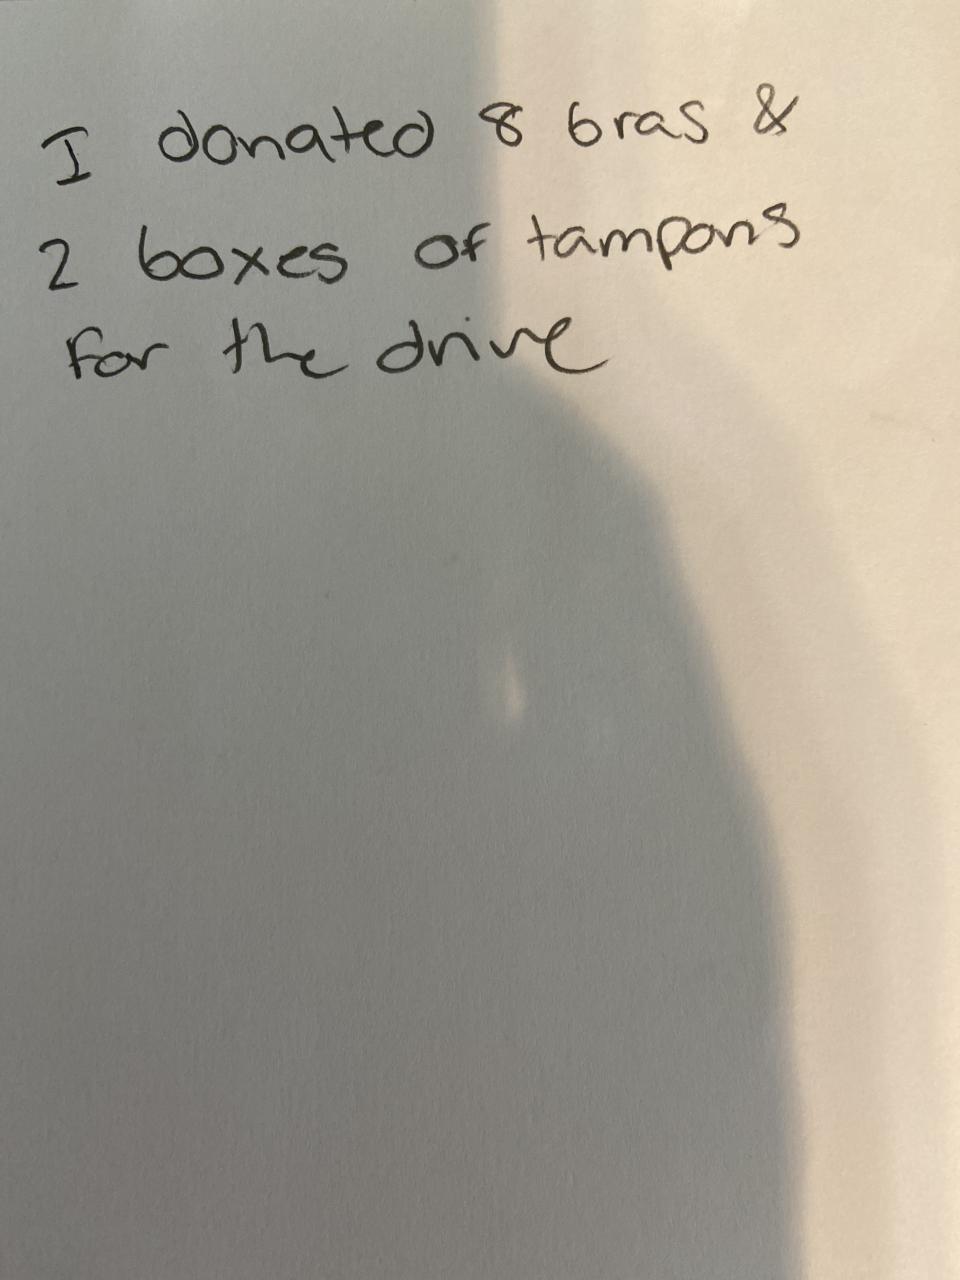 I donated 8 bras &
2 boxes of tampons
for the drive